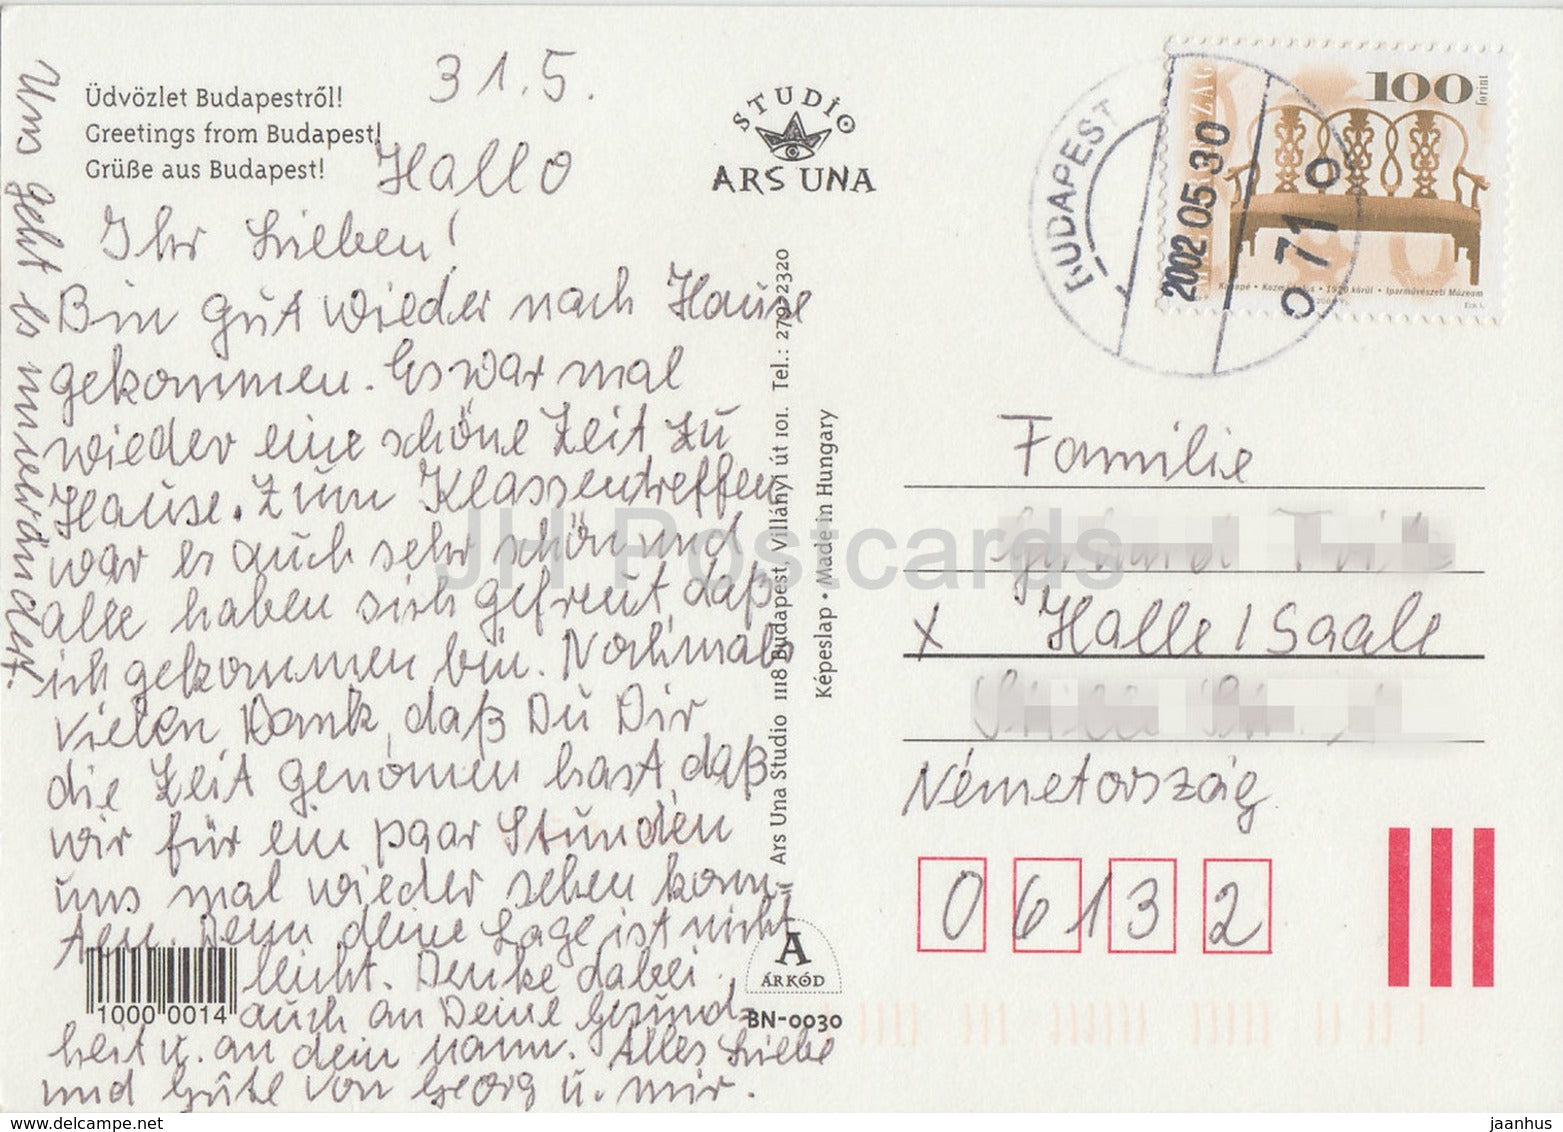 Üdvözlet Budapestről!
Greetings from Budapest!
Grüße aus Budapest!
31.5.
Hallo
Ihr Lieben!
Bin gut wieder nach Hause
gekommen. Es war mal
wieder eine schöne Zeit zu
Hause. Zum Klassentreffen
war es auch sehr schön und
alle haben sich gefreut, daß
ich gekommen bin. Nochmals
vielen Dank, daß Du Dir
die Zeit genomen hast, daß
wir für ein paar Stunden
uns mal wieder sehen konn=
ten. Denn deine Lage ist nicht
leicht. Denke dabei
auch an Deine Gesund=
heit u. an dein Mann. Alles Liebe
und Gute von Georg u. mir.
Uns geht es unverändert.
1000 0014
STUDIO
ARS UNA
Ars Una Studio 1118 Budapest, Villányi út 101. Tel.: 2792320
Képeslap • Made in Hungary
A
ÁRKÓD
BN-0030
BUDAPEST
2002 05 30
071
100
forint
Iparművészeti Múzeum
Familie
x Halle / Saale
Németország
06132
JH Postcards
delcampe.net
jaanhus